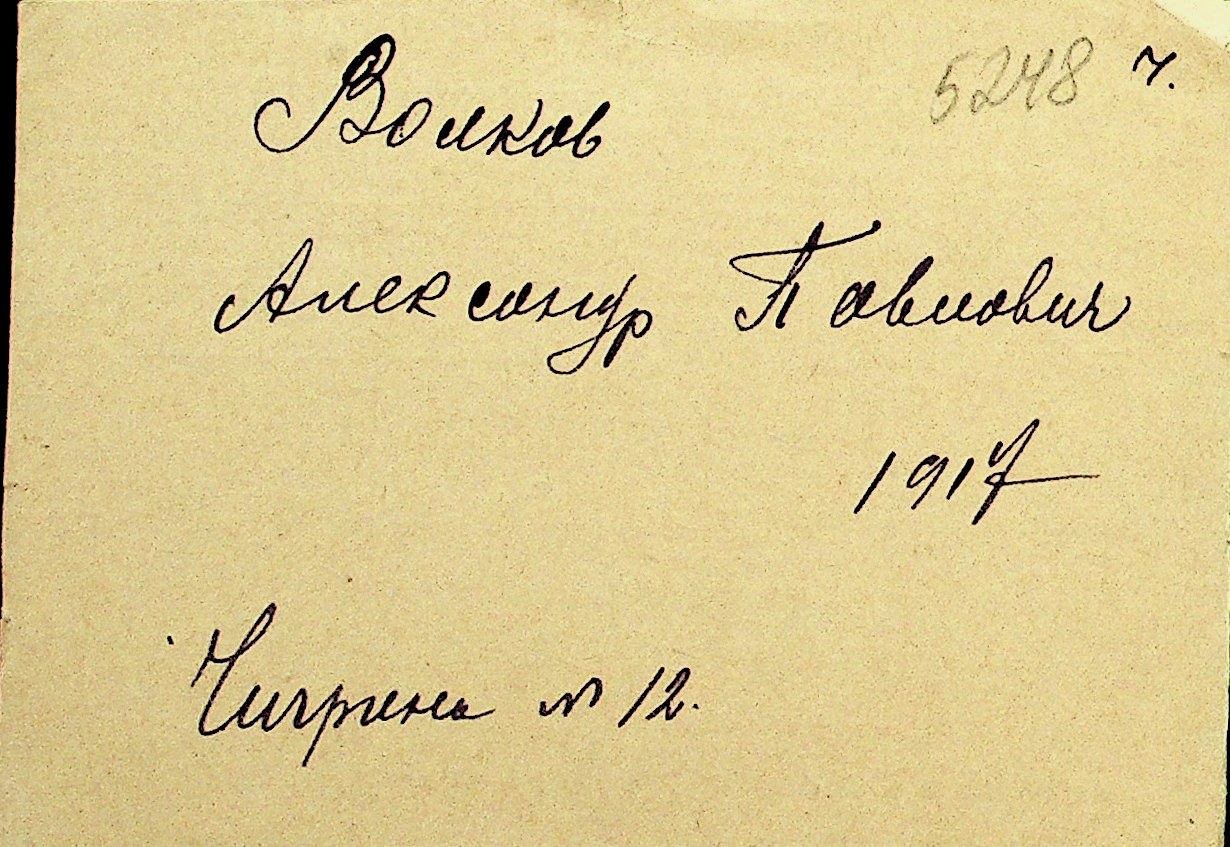 5248 ч.
Волков
Александр Павлович
1917
Чигрина № 12.